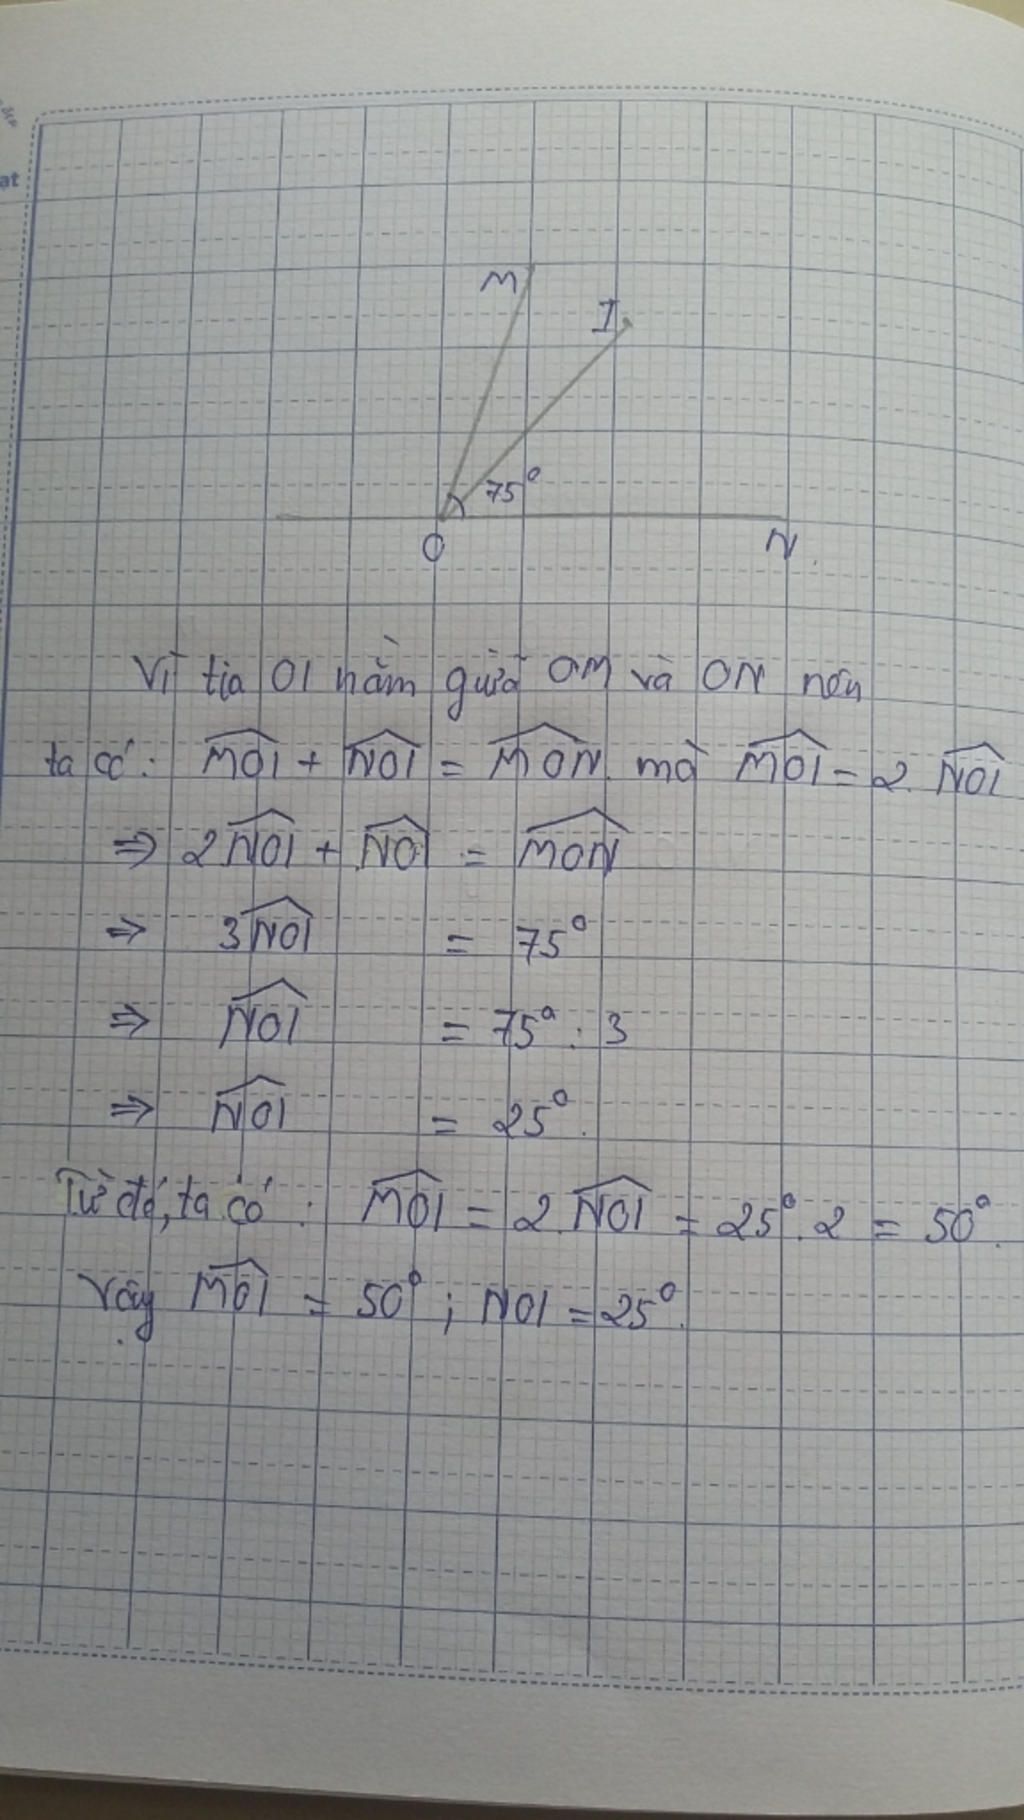 M
I
75°
O
N
Vì tia OI nằm giữa OM và ON nên
ta có: MOI + NOI = MON mà MOI = 2. NOI
⇒ 2NOI + NOI = MON
⇒ 3NOI = 75°
⇒ NOI = 75° : 3
⇒ NOI = 25°.
Từ đó, ta có: MOI = 2.NOI = 25°.2 = 50°.
Vậy MOI = 50° ; NOI = 25°.